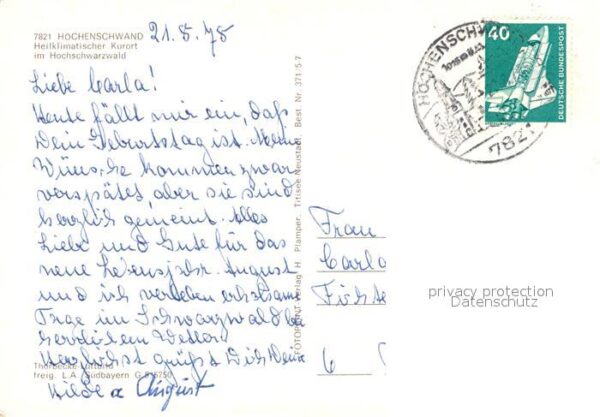 7821 HÖCHENSCHWAND
Heilklimatischer Kurort
im Hochschwarzwald
21.8.78
Liebe Carla!
Heute fällt mir ein, daß
Dein Geburtstag ist. Meine
Wünsche kommen zwar
verspätet, aber sie sind
herzlich gemeint. Alles
Liebe und Gute für das
neue Lebensjahr. August
und ich verleben erholsame
Tage im Schwarzwald bei
herrlichem Wetter.
Herzlichst grüßt Dich Deine
Hilde u August
Thorbecke-Luftbild
freig. L.A. Südbayern G 5/5750
FOTOPRINT-Verlag H. Plamper, Titisee-Neustadt, Best. Nr. 371-5-7
HÖCHENSCHW
7821
40
DEUTSCHE BUNDESPOST
Frau
Carla
6
privacy protection
Datenschutz